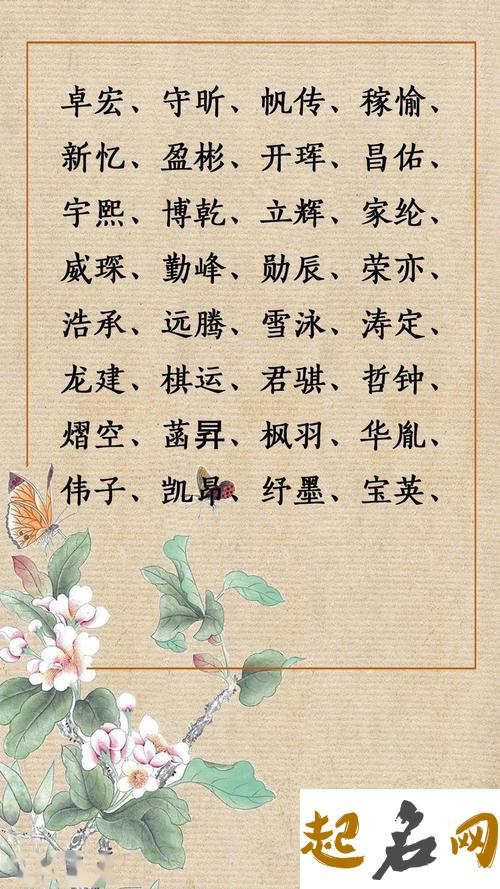 卓宏、守昕、帆传、稼愉、
新忆、盈彬、开珲、昌佑、
宇熙、博乾、立辉、家纶、
威琛、勤峰、勋辰、荣亦、
浩承、远腾、雪泳、涛定、
龙建、棋运、君骐、哲钟、
熠空、菡昇、枫羽、华胤、
伟子、凯昂、纾墨、宝英、
起名网